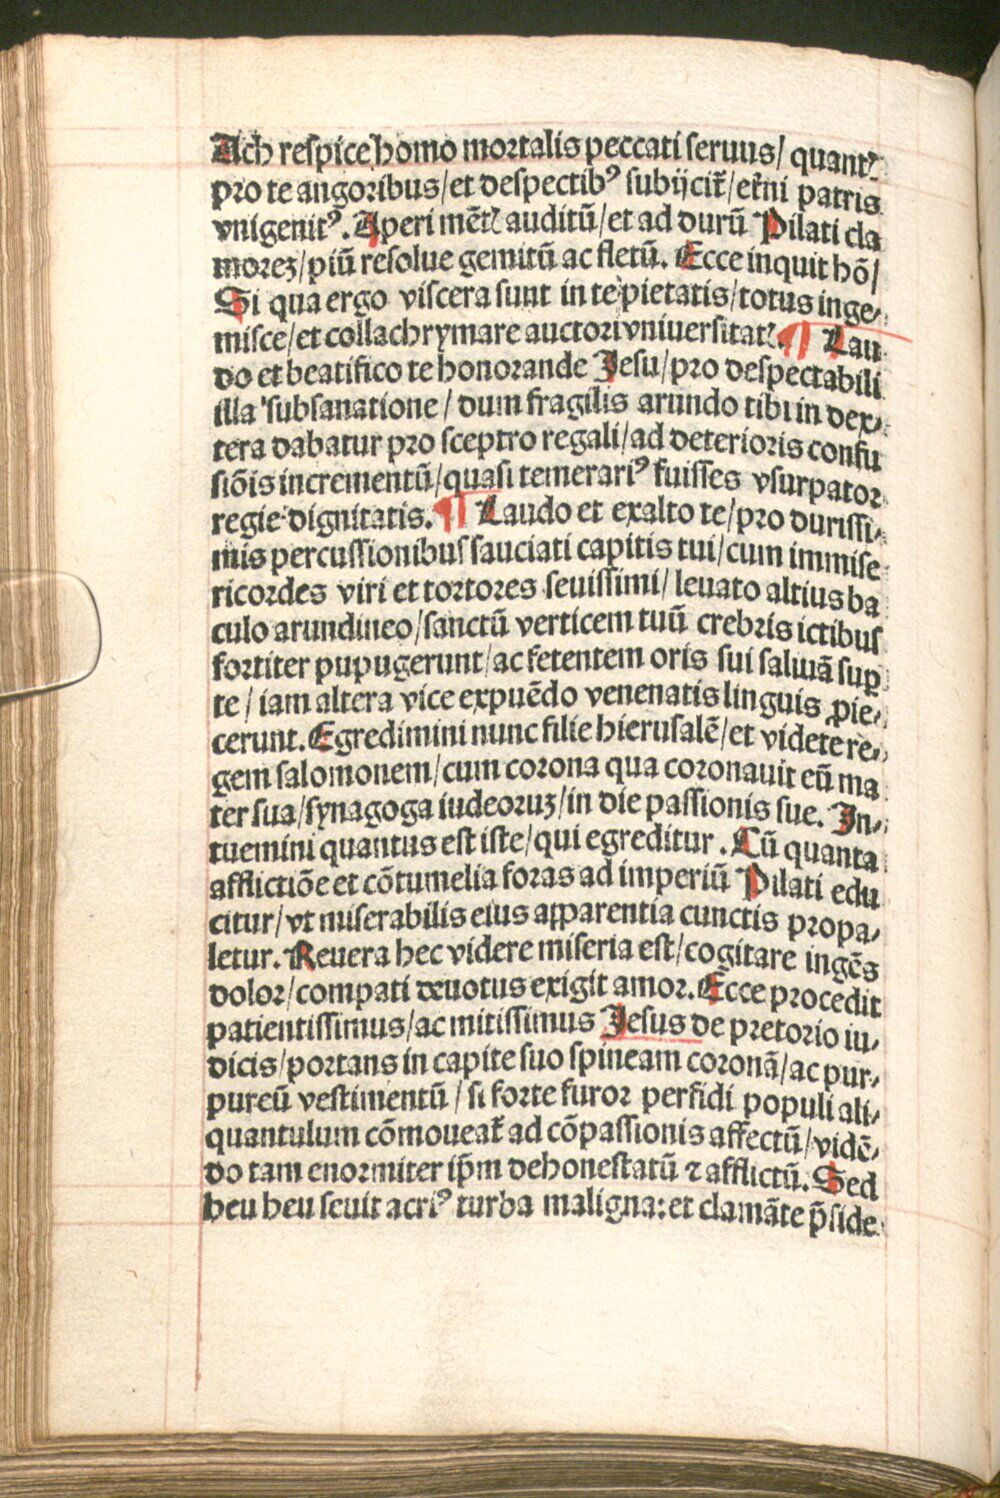 Ach respice homo mortalis peccati seruus/ quantꝭ
pro te angoribus/et despectibꝰ subijcit᷑/et᷑ni patris
vnigenitꝰ. Aperi mẽtꝭ auditũ/et ad durũ Pilati cla
morez/piũ resolue gemitũ ac fletũ. Ecce inquit hõ/
Si qua ergo viscera sunt in te pietatis/totus inge⸗
misce/et collachrymare auctori vniuersitatꝭ. ¶ Lau
do et beatifico te honorande Jesu/pro despectabili
illa subsanatione/dum fragilis arundo tibi in dex⸗
tera dabatur pro sceptro regali/ad deterioris confu
siõis incrementũ/quasi temerariꝰ fuisses vsurpator
regie dignitatis. ¶ Laudo et exalto te/pro durissi⸗
mis percussionibus sauciati capitis tui/cum immise
ricordes viri et tortores seuissimi/leuato altius ba
culo arundineo/sanctũ verticem tuũ crebris ictibus
fortiter pupugerunt/ac fetentem oris sui saliuã suꝑ
te/iam altera vice expuẽdo venenatis linguis ꝓie⸗
cerunt. Egredimini nunc filie hierusalẽ/et videte re⸗
gem salomonem/cum corona qua coronauit eũ ma
ter sua/synagoga iudeoruz/in die passionis sue. In⸗
tuemini quantus est iste/qui egreditur. Cũ quanta
afflictiõe et cõtumelia foras ad imperiũ Pilati edu
citur/vt miserabilis eius apparentia cunctis propa⸗
letur. Reuera hec videre miseria est/cogitare ingẽs
dolor/compati deuotus exigit amor. Ecce procedit
patientissimus/ac mitissimus Jesus de pretorio iu⸗
dicis/portans in capite suo spineam coronã/ac pur⸗
pureũ vestimentũ/si forte furor perfidi populi ali⸗
quantulum cõmoueat᷑ ad cõpassionis affectũ/vidẽ⸗
do tam enormiter ip̃m dehonestatũ ⁊ afflictũ. Sed
heu heu seuit acriꝰ turba maligna: et clamãte p̃side